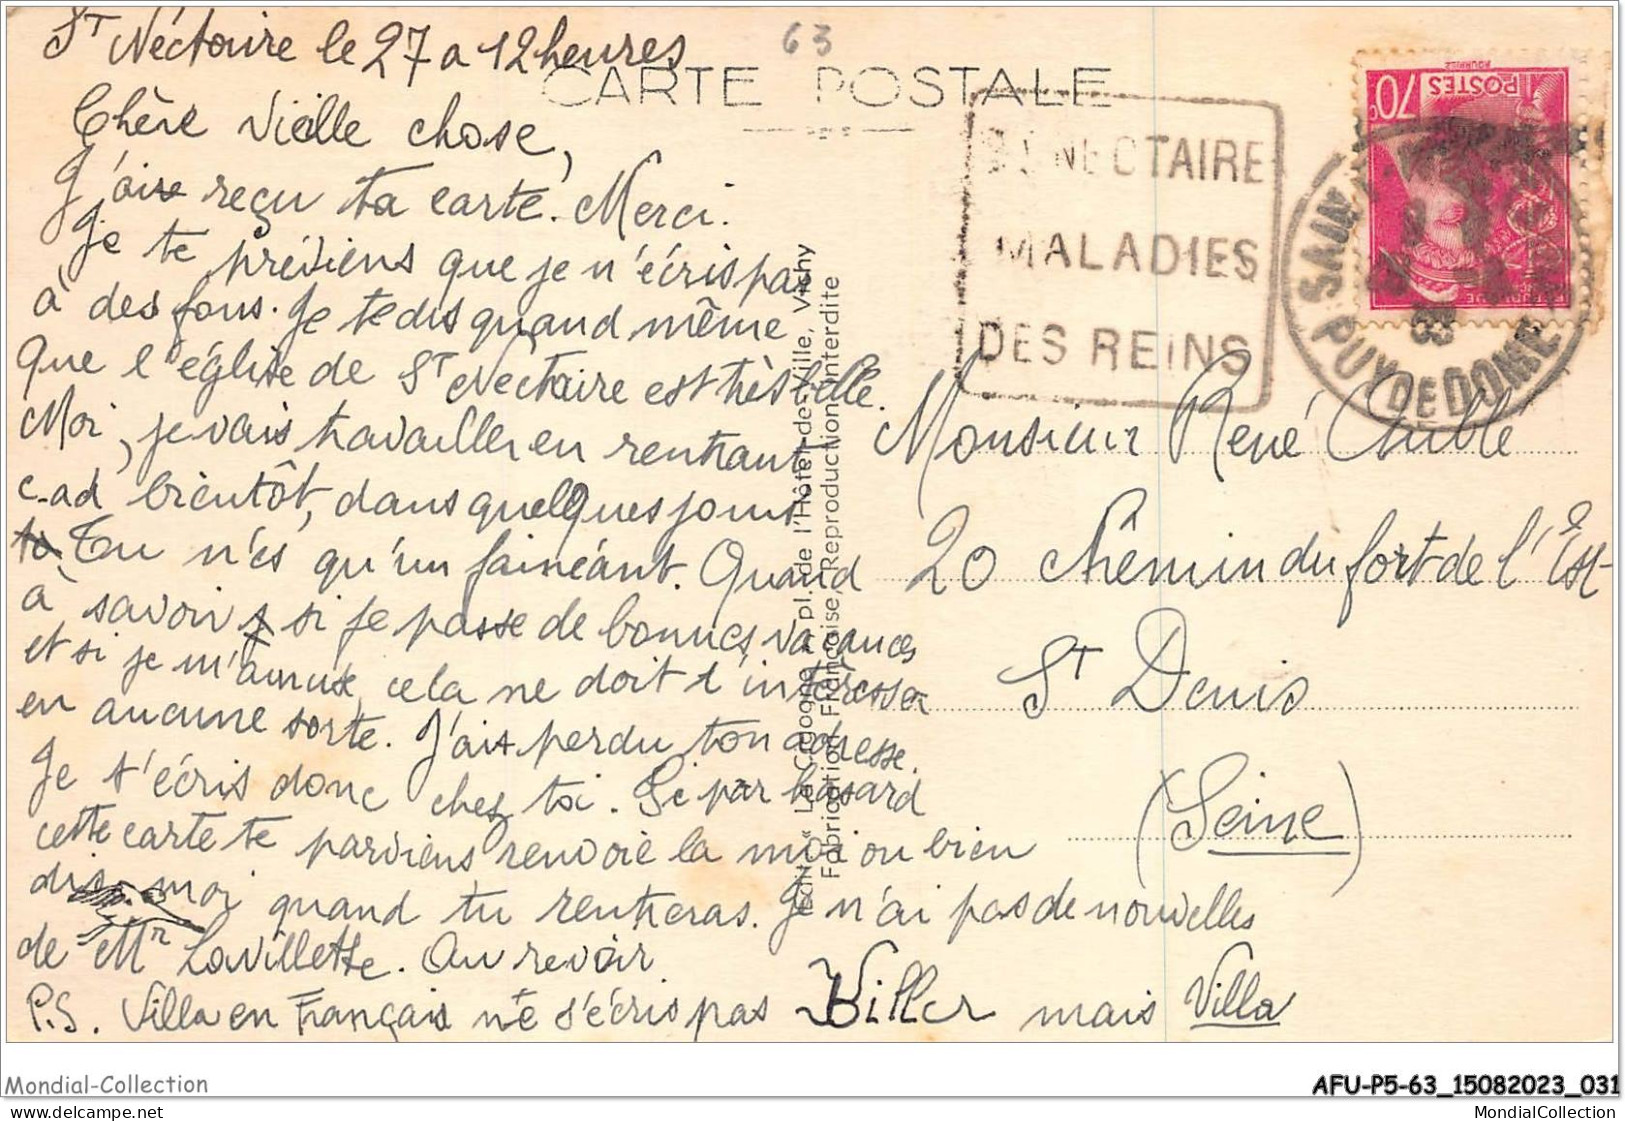 St Néctaire le 27 a 12 heures
63
CARTE POSTALE
Chère vieille chose,
J'ai reçu ta carte. Merci.
Je te préviens que je n'écris pas
à des fous. Je te dis quand même
que l'église de St Nectaire est très belle.
Moi, je vais travailler en rentrant
c.ad bientôt, dans quelques jours
Tu n'es qu'un fainéant. Quand
à savoir si je passe de bonnes vacances
et si je m'amuse, cela ne doit t'intéresser
en aucune sorte. J'ai perdu ton adresse.
Je t'écris donc chez toi. Si par hasard
cette carte te parviens renvoie la moi ou bien
dis moi quand tu rentreras. Je n'ai pas de nouvelles
de Mr Lavillette. Au revoir
P.S. Villa en Français ne s'écris pas Viller mais Villa
Edit. "La Cigogne" pl. de l'Hôtel-de-Ville, Vichy
Fabrication Française, Reproduction Interdite
ST NECTAIRE
MALADIES
DES REINS
70c
POSTES
SAINT
PUY DE DOME
Monsieur René
20 Chemin du fort de l'Est
St Denis
(Seine)
Mondial-Collection
AFU-P5-63_15082023_031
© delcampe.net
MondialCollection